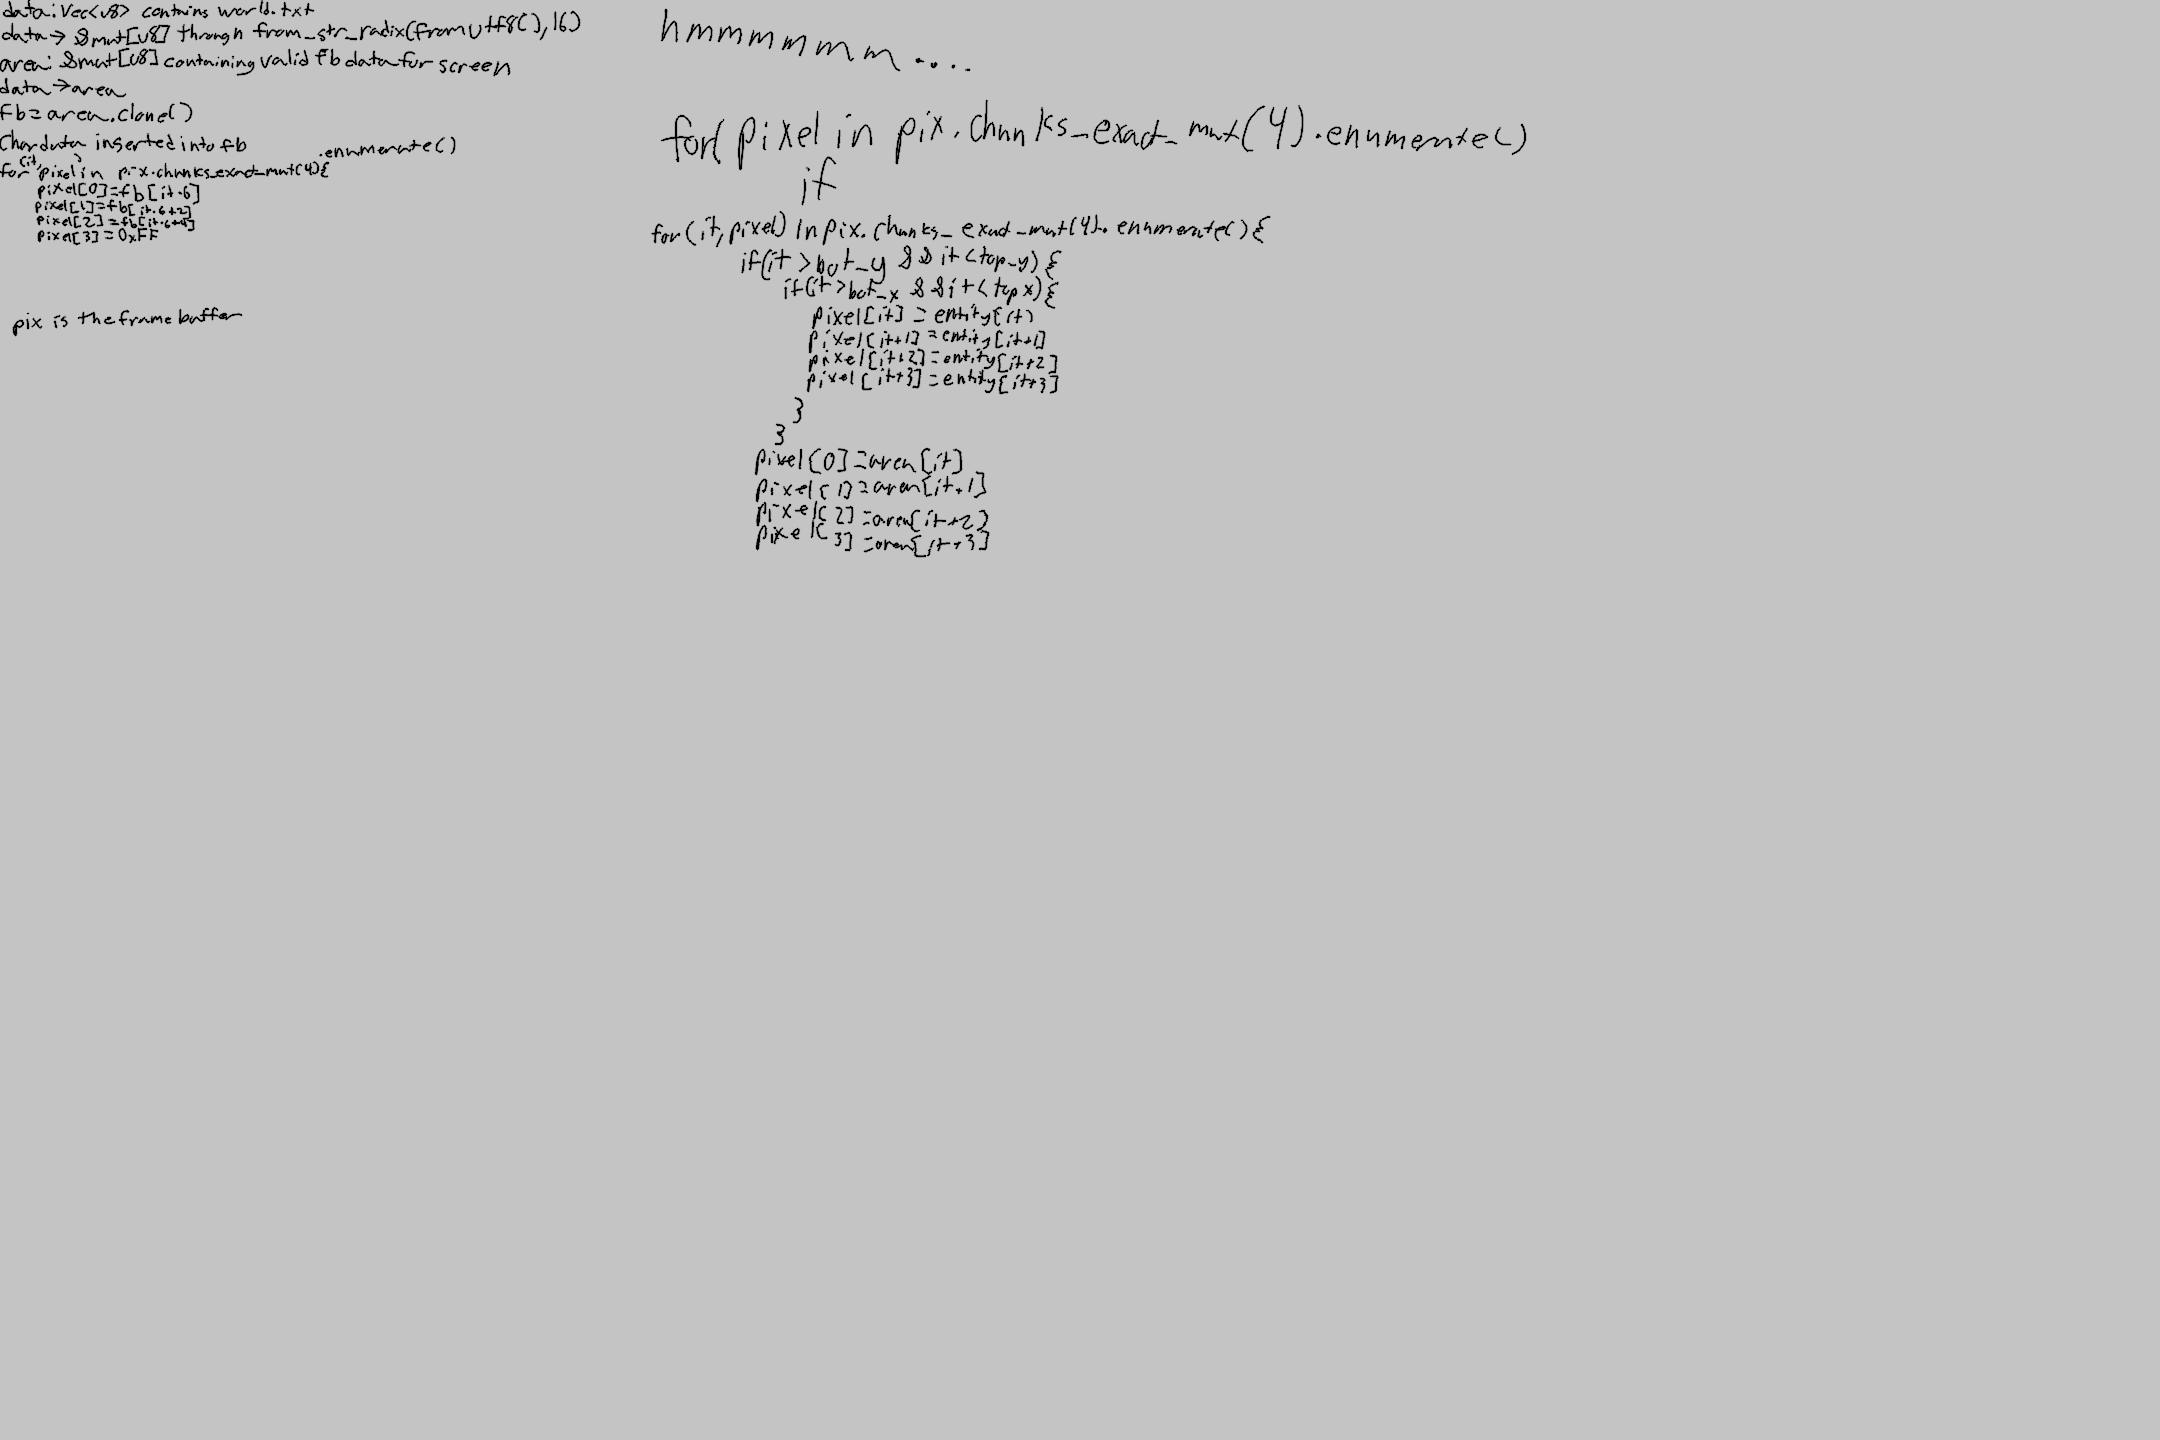 data: Vec<u8> contains world.txt
data → &mut[u8] through from_str_radix(fromutf8(),16)
area: &mut[u8] containing valid fb data for screen
data → area
fb = area.clone()
Char data inserted into fb
for (it, pixel) in pix.chunks_exact_mut(4){ .enumerate()
pixel[0]=fb[it·6]
pixel[1]=fb[it·6+2]
pixel[2]=fb[it·6+4]
pixel[3]=0xFF
pix is the frame buffer
hmmmmmm....
for( pixel in pix.chunks_exact_mut(4).enumerate()
if
for (it, pixel) in pix.chunks_exact_mut(4).enumerate(){
if(it > bot_y && it < top_y){
if(it > bot_x && it < top x){
pixel[it] = entity[it)
pixel[it+1] = entity[it+1]
pixel[it+2] = entity[it+2]
pixel[it+3] = entity[it+3]
}
}
pixel[0] = area[it]
pixel[1] = area[it+1]
pixel[2] = area[it+2]
pixel[3] = area[it+3]